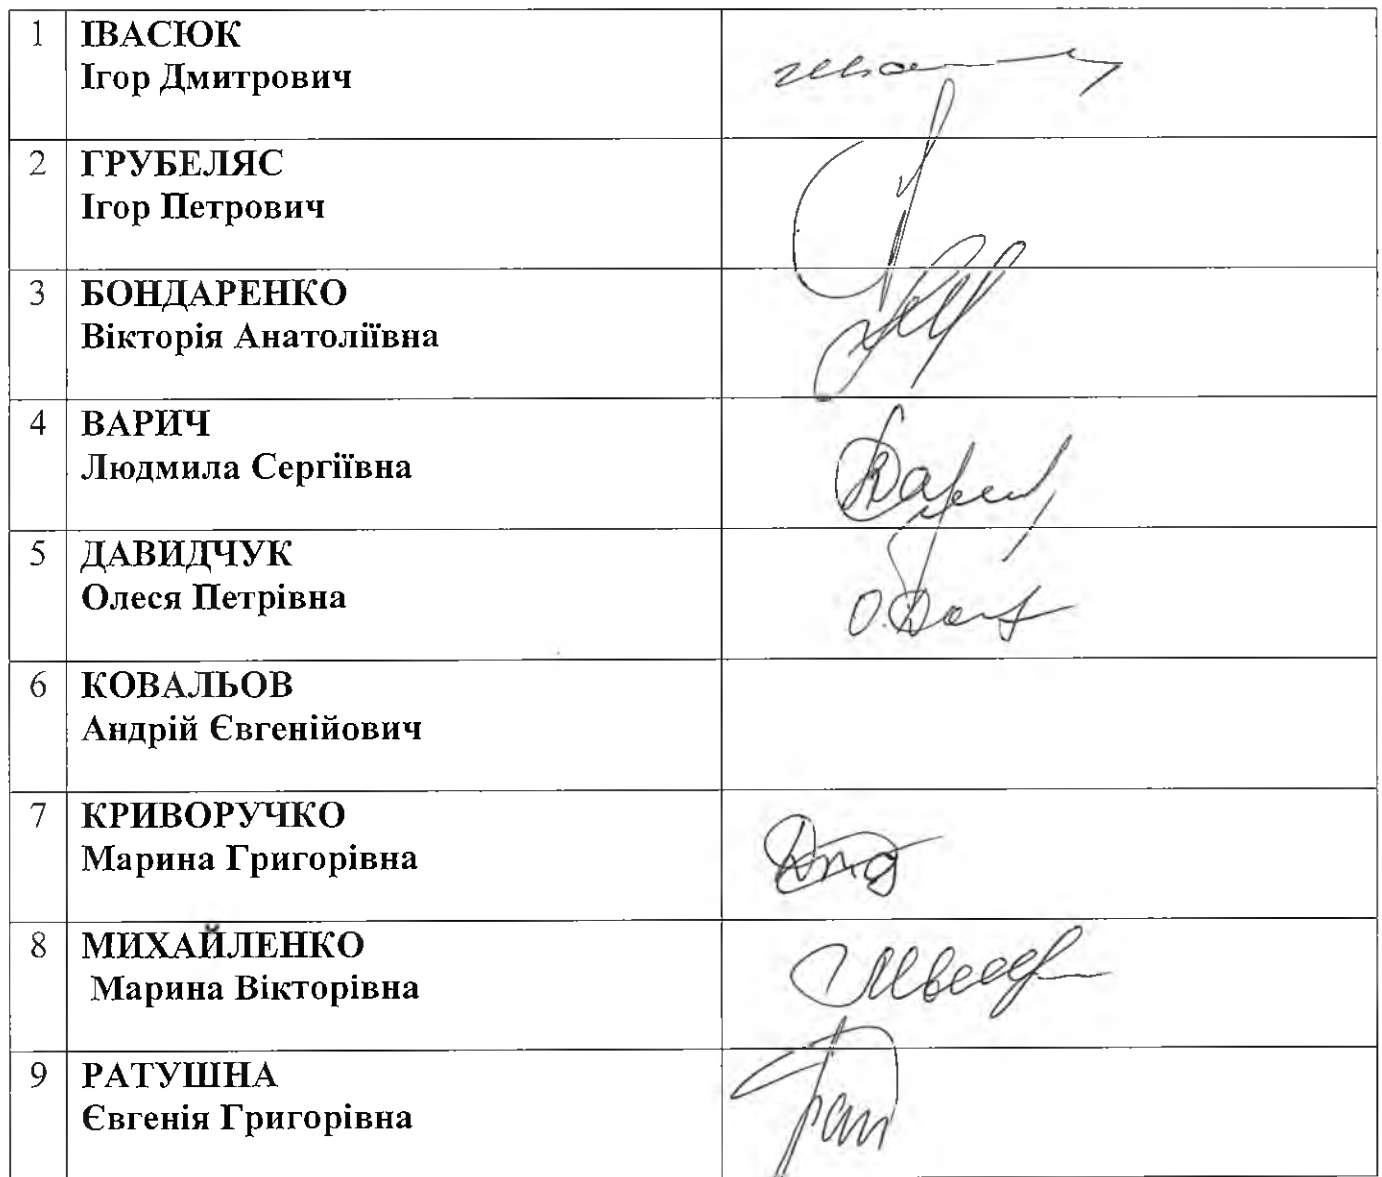 1 ІВАСЮК
Ігор Дмитрович
2 ГРУБЕЛЯС
Ігор Петрович
3 БОНДАРЕНКО
Вікторія Анатоліївна
4 ВАРИЧ
Людмила Сергіївна
5 ДАВИДЧУК
Олеся Петрівна
6 КОВАЛЬОВ
Андрій Євгенійович
7 КРИВОРУЧКО
Марина Григорівна
8 МИХАЙЛЕНКО
Марина Вікторівна
9 РАТУШНА
Євгенія Григорівна